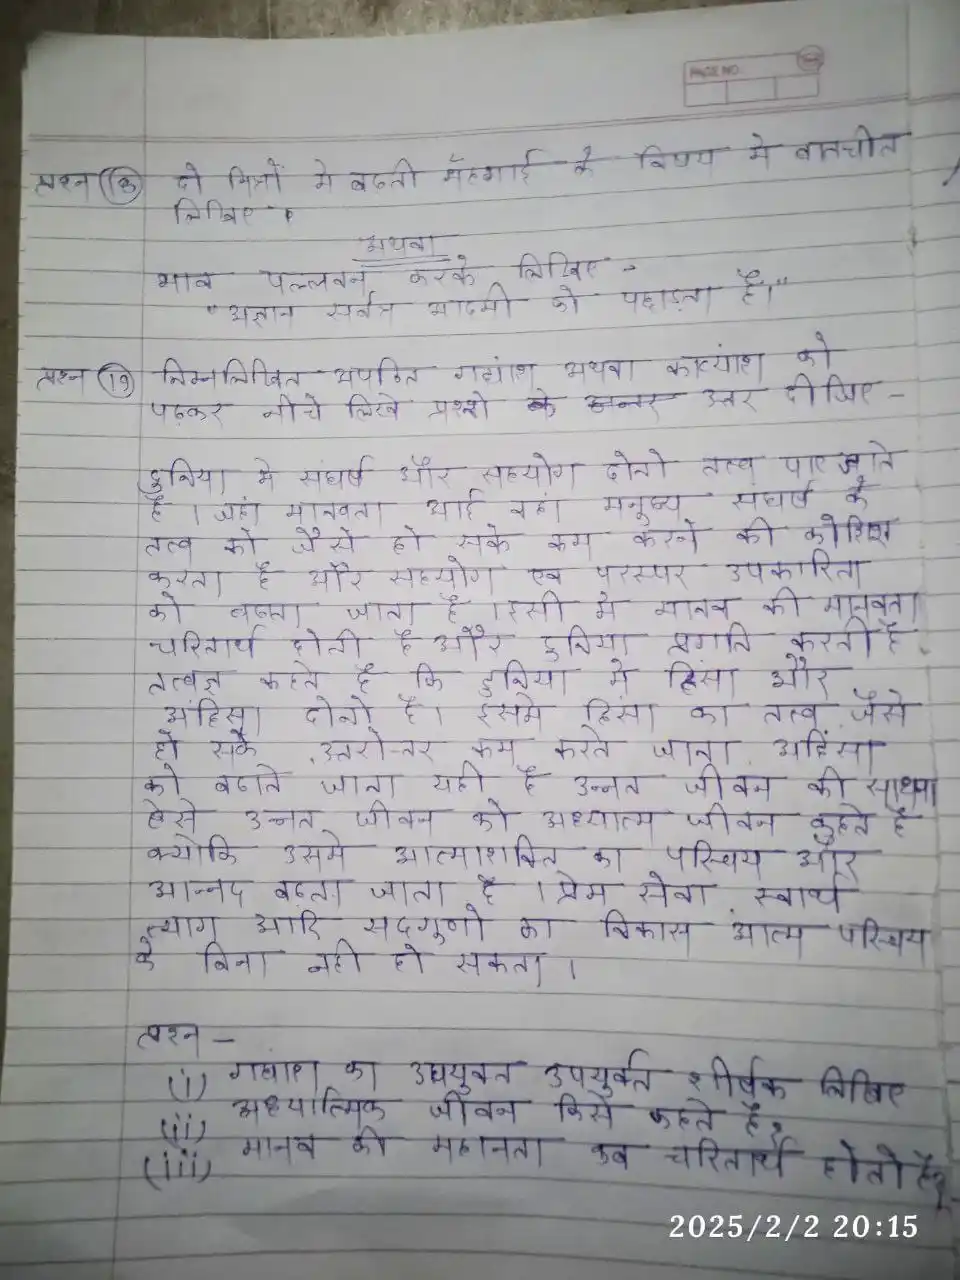 PAGE NO.
प्रश्न (18) दो मित्रों मे बढती मँहगाई के विषय मे बातचीत
लिखिए।
अथवा
भाव पल्लवन करके लिखिए -
"अज्ञान सर्वत्र आदमी को पछाड़ता है।"
प्रश्न (19) निम्नलिखित अपठित गद्यांश अथवा काव्यांश को
पढ़कर नीचे लिखे प्रश्नो के उत्तर दीजिए -
दुनिया मे संघर्ष और सहयोग दोनो तत्व पाए जाते
है । जहां मानवता आई वहां मनुष्य संघर्ष के
तत्व को जैसे हो सके कम करने की कोशिश
करता है और सहयोग एव परस्पर उपकारिता
को बढाता जाता है । इसी मे मानव की मानवता
चरितार्थ होती है और दुनिया प्रगति करती है
तत्वज्ञ कहते है कि दुनिया मे हिंसा और
अहिंसा दोनो है। इसमे हिंसा का तत्व जैसे
हो सके उत्तरोत्तर कम करते जाना अहिंसा
को बढाते जाना यही है उन्नत जीवन की साधना
ऐसे उन्नत जीवन को अध्यात्म जीवन कहते है
क्योकि उसमे आत्माशक्ति का परिचय और
आनन्द बढता जाता है । प्रेम सेवा स्वार्थ
त्याग आदि सदगुणो का विकास आत्म परिचय
के बिना नही हो सकता ।
प्रश्न -
(i) गद्यांश का उपयुक्त उपयुर्क्त शीर्षक लिखिए
(ii) अध्यात्मिक जीवन किसे कहते है?
(iii) मानव की महानता कब चरितार्थ होती है?
2025/2/2 20:15